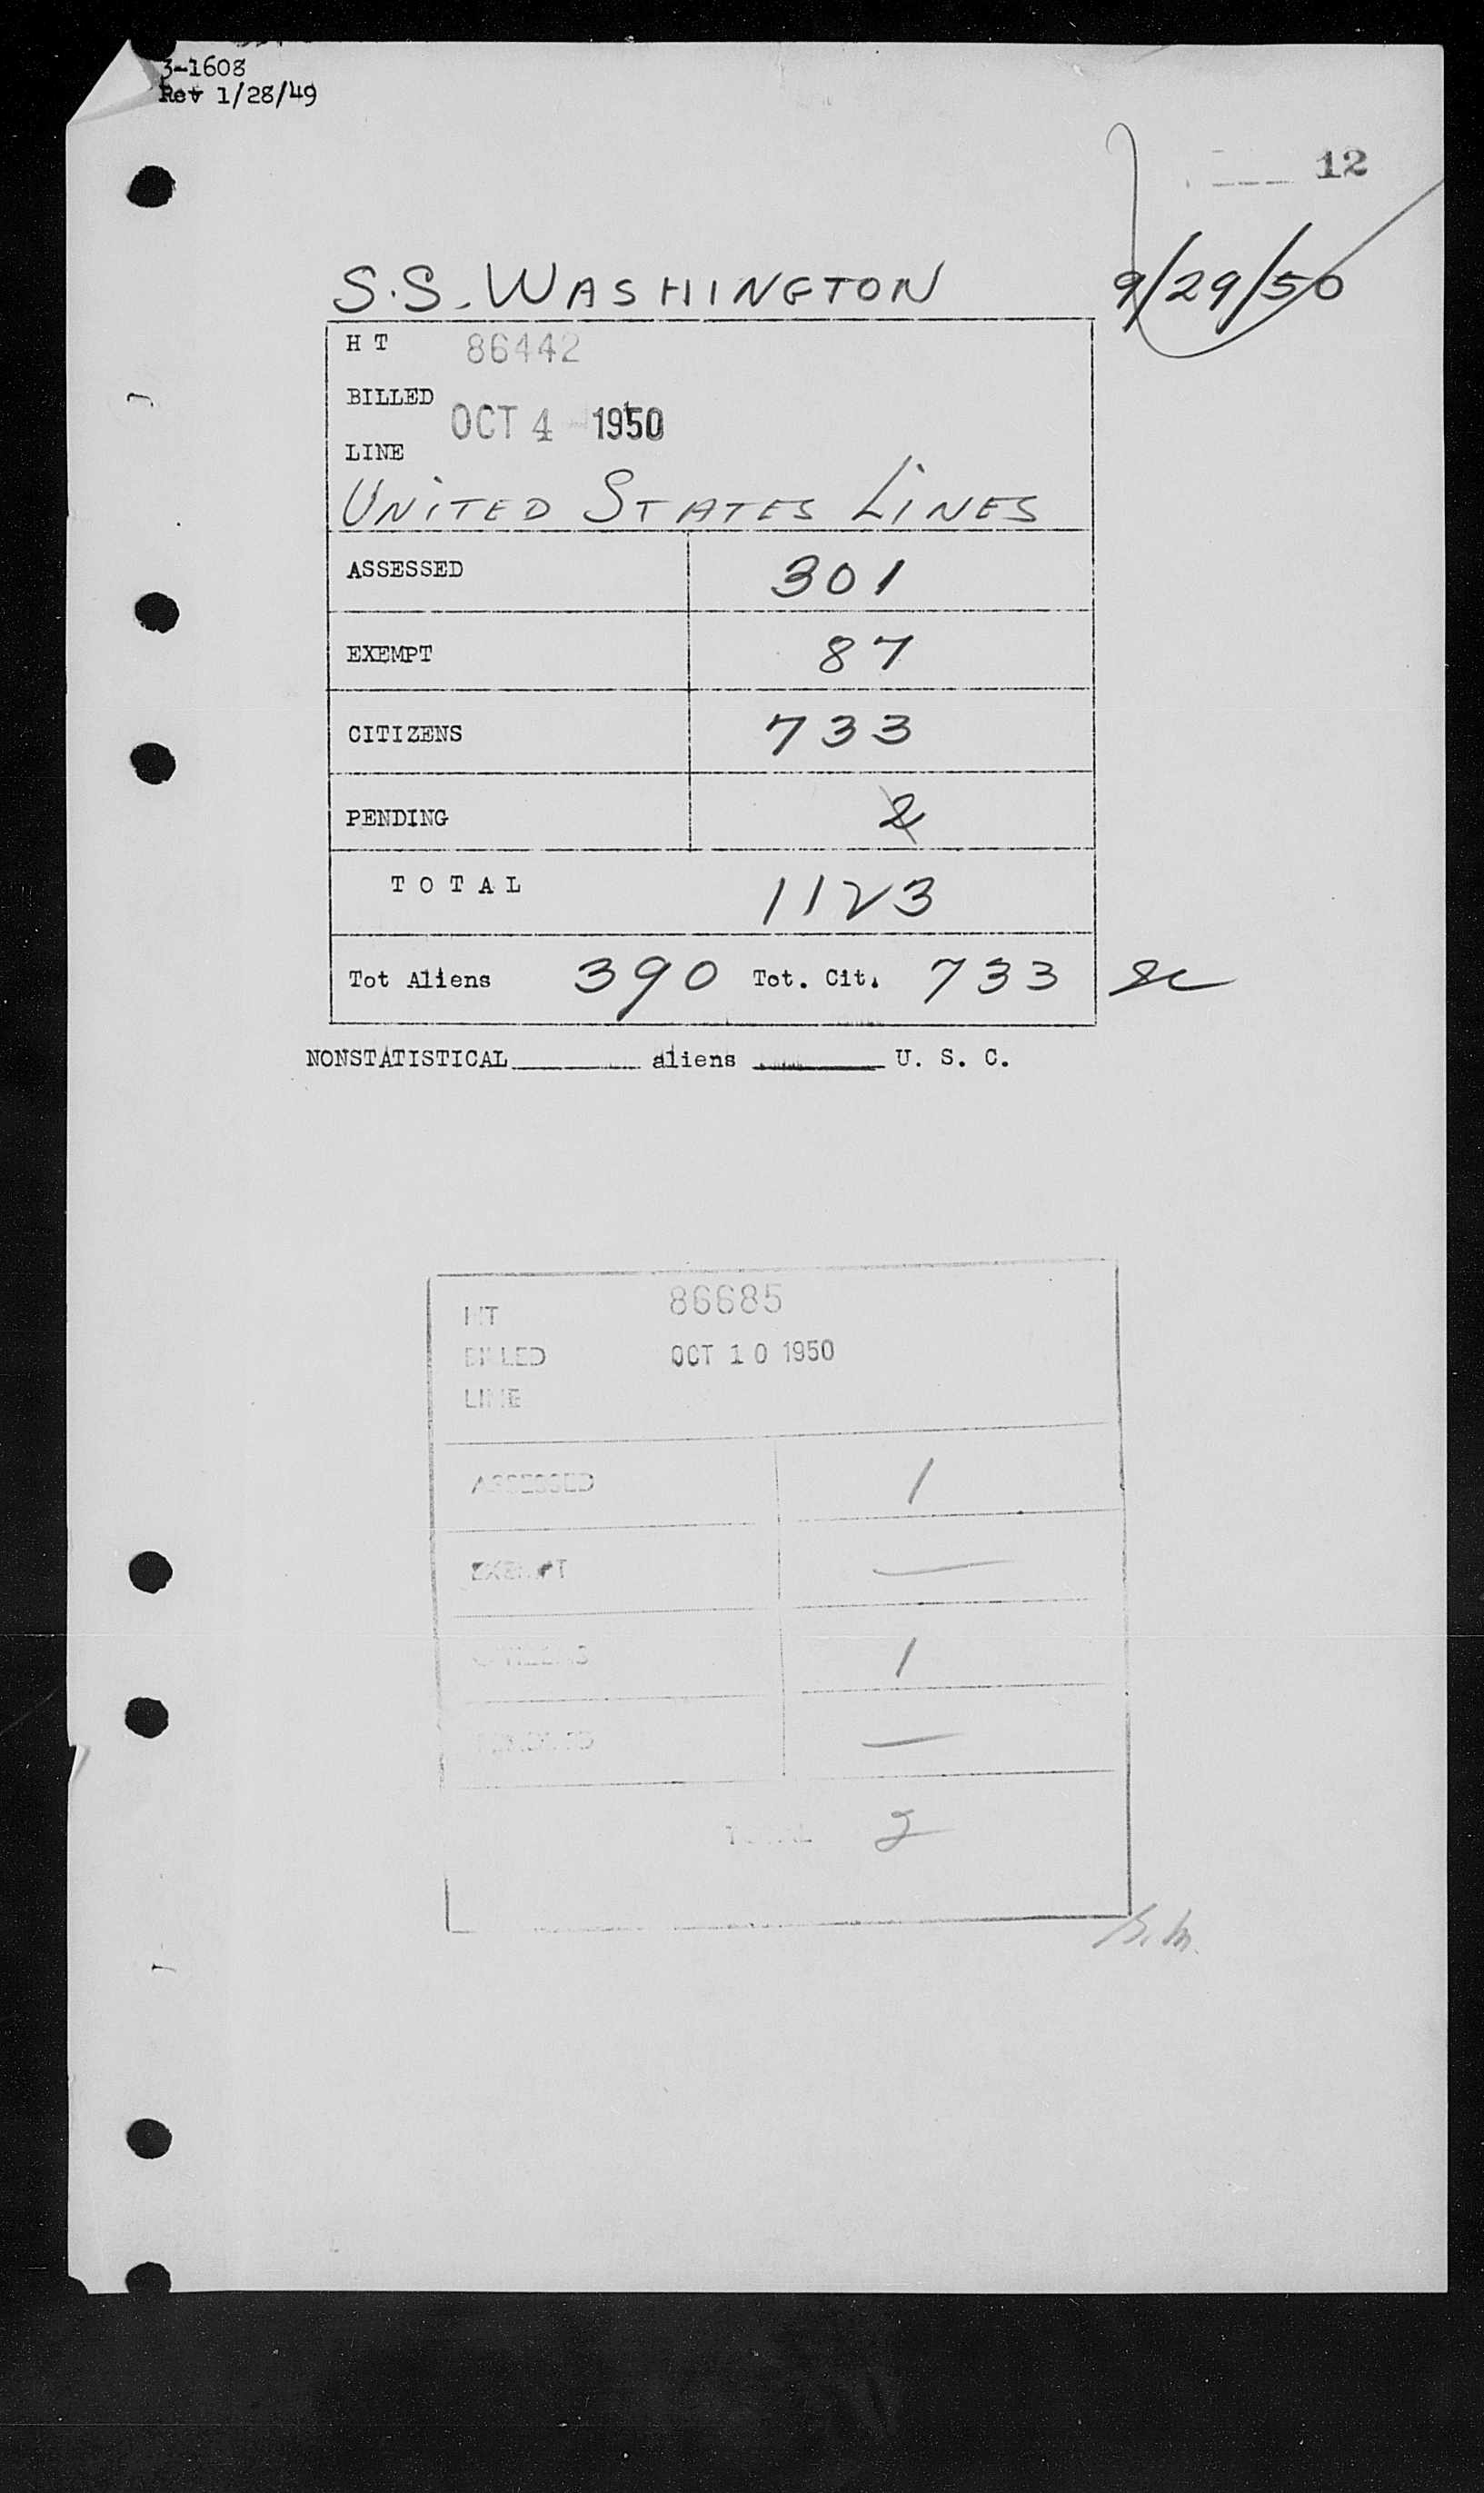 3-1608
Rev 1/28/49
12
S.S. WASHINGTON 9/29/50
H T 86442
BILLED OCT 4 1950
LINE
UNITED STATES LINES
ASSESSED 301
EXEMPT 87
CITIZENS 733
PENDING 2
TOTAL 1123
Tot Aliens 390 Tot. Cit. 733
NONSTATISTICAL aliens U. S. C.
HT 86685
BILLED OCT 10 1950
LINE
ASSESSED 1
EXEMPT —
CITIZENS 1
—
TOTAL 2